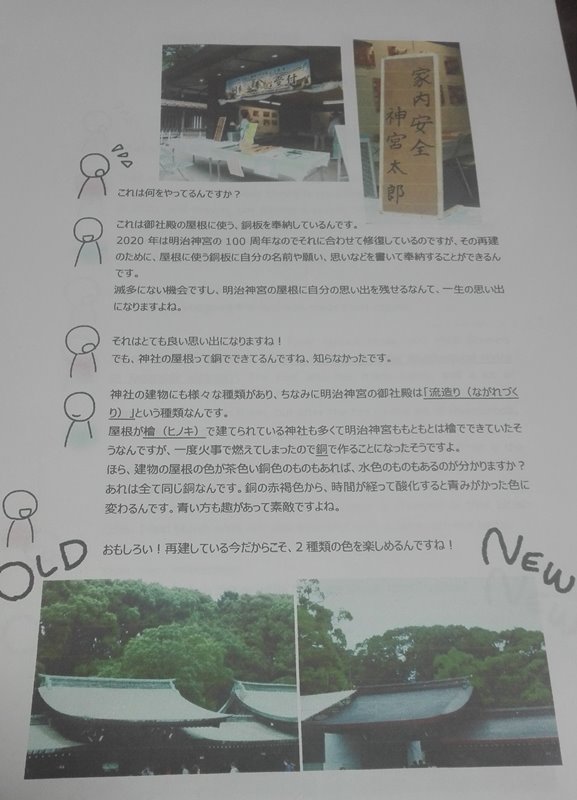 家内安全
神宮太郎
これは何をやってるんですか？
これは御社殿の屋根に使う、銅板を奉納しているんです。
2020 年は明治神宮の 100 周年なのでそれに合わせて修復しているのですが、その再建
のために、屋根に使う銅板に自分の名前や願い、思いなどを書いて奉納することができるん
です。
滅多にない機会ですし、明治神宮の屋根に自分の思い出を残せるなんて、一生の思い出
になりますよね。
それはとても良い思い出になりますね！
でも、神社の屋根って銅でできてるんですね、知らなかったです。
神社の建物にも様々な種類があり、ちなみに明治神宮の御社殿は「流造り（ながれづく
り）」という種類なんです。
屋根が檜（ヒノキ）で建てられている神社も多くて明治神宮ももともとは檜でできていたそ
うなんですが、一度火事で燃えてしまったので銅で作ることになったそうですよ。
ほら、建物の屋根の色が茶色い銅色のものもあれば、水色のものもあるのが分かりますか？
あれは全て同じ銅なんです。銅の赤褐色から、時間が経って酸化すると青みがかった色に
変わるんです。青い方も趣があって素敵ですよね。
おもしろい！再建している今だからこそ、2 種類の色を楽しめるんですね！
OLD
NEW